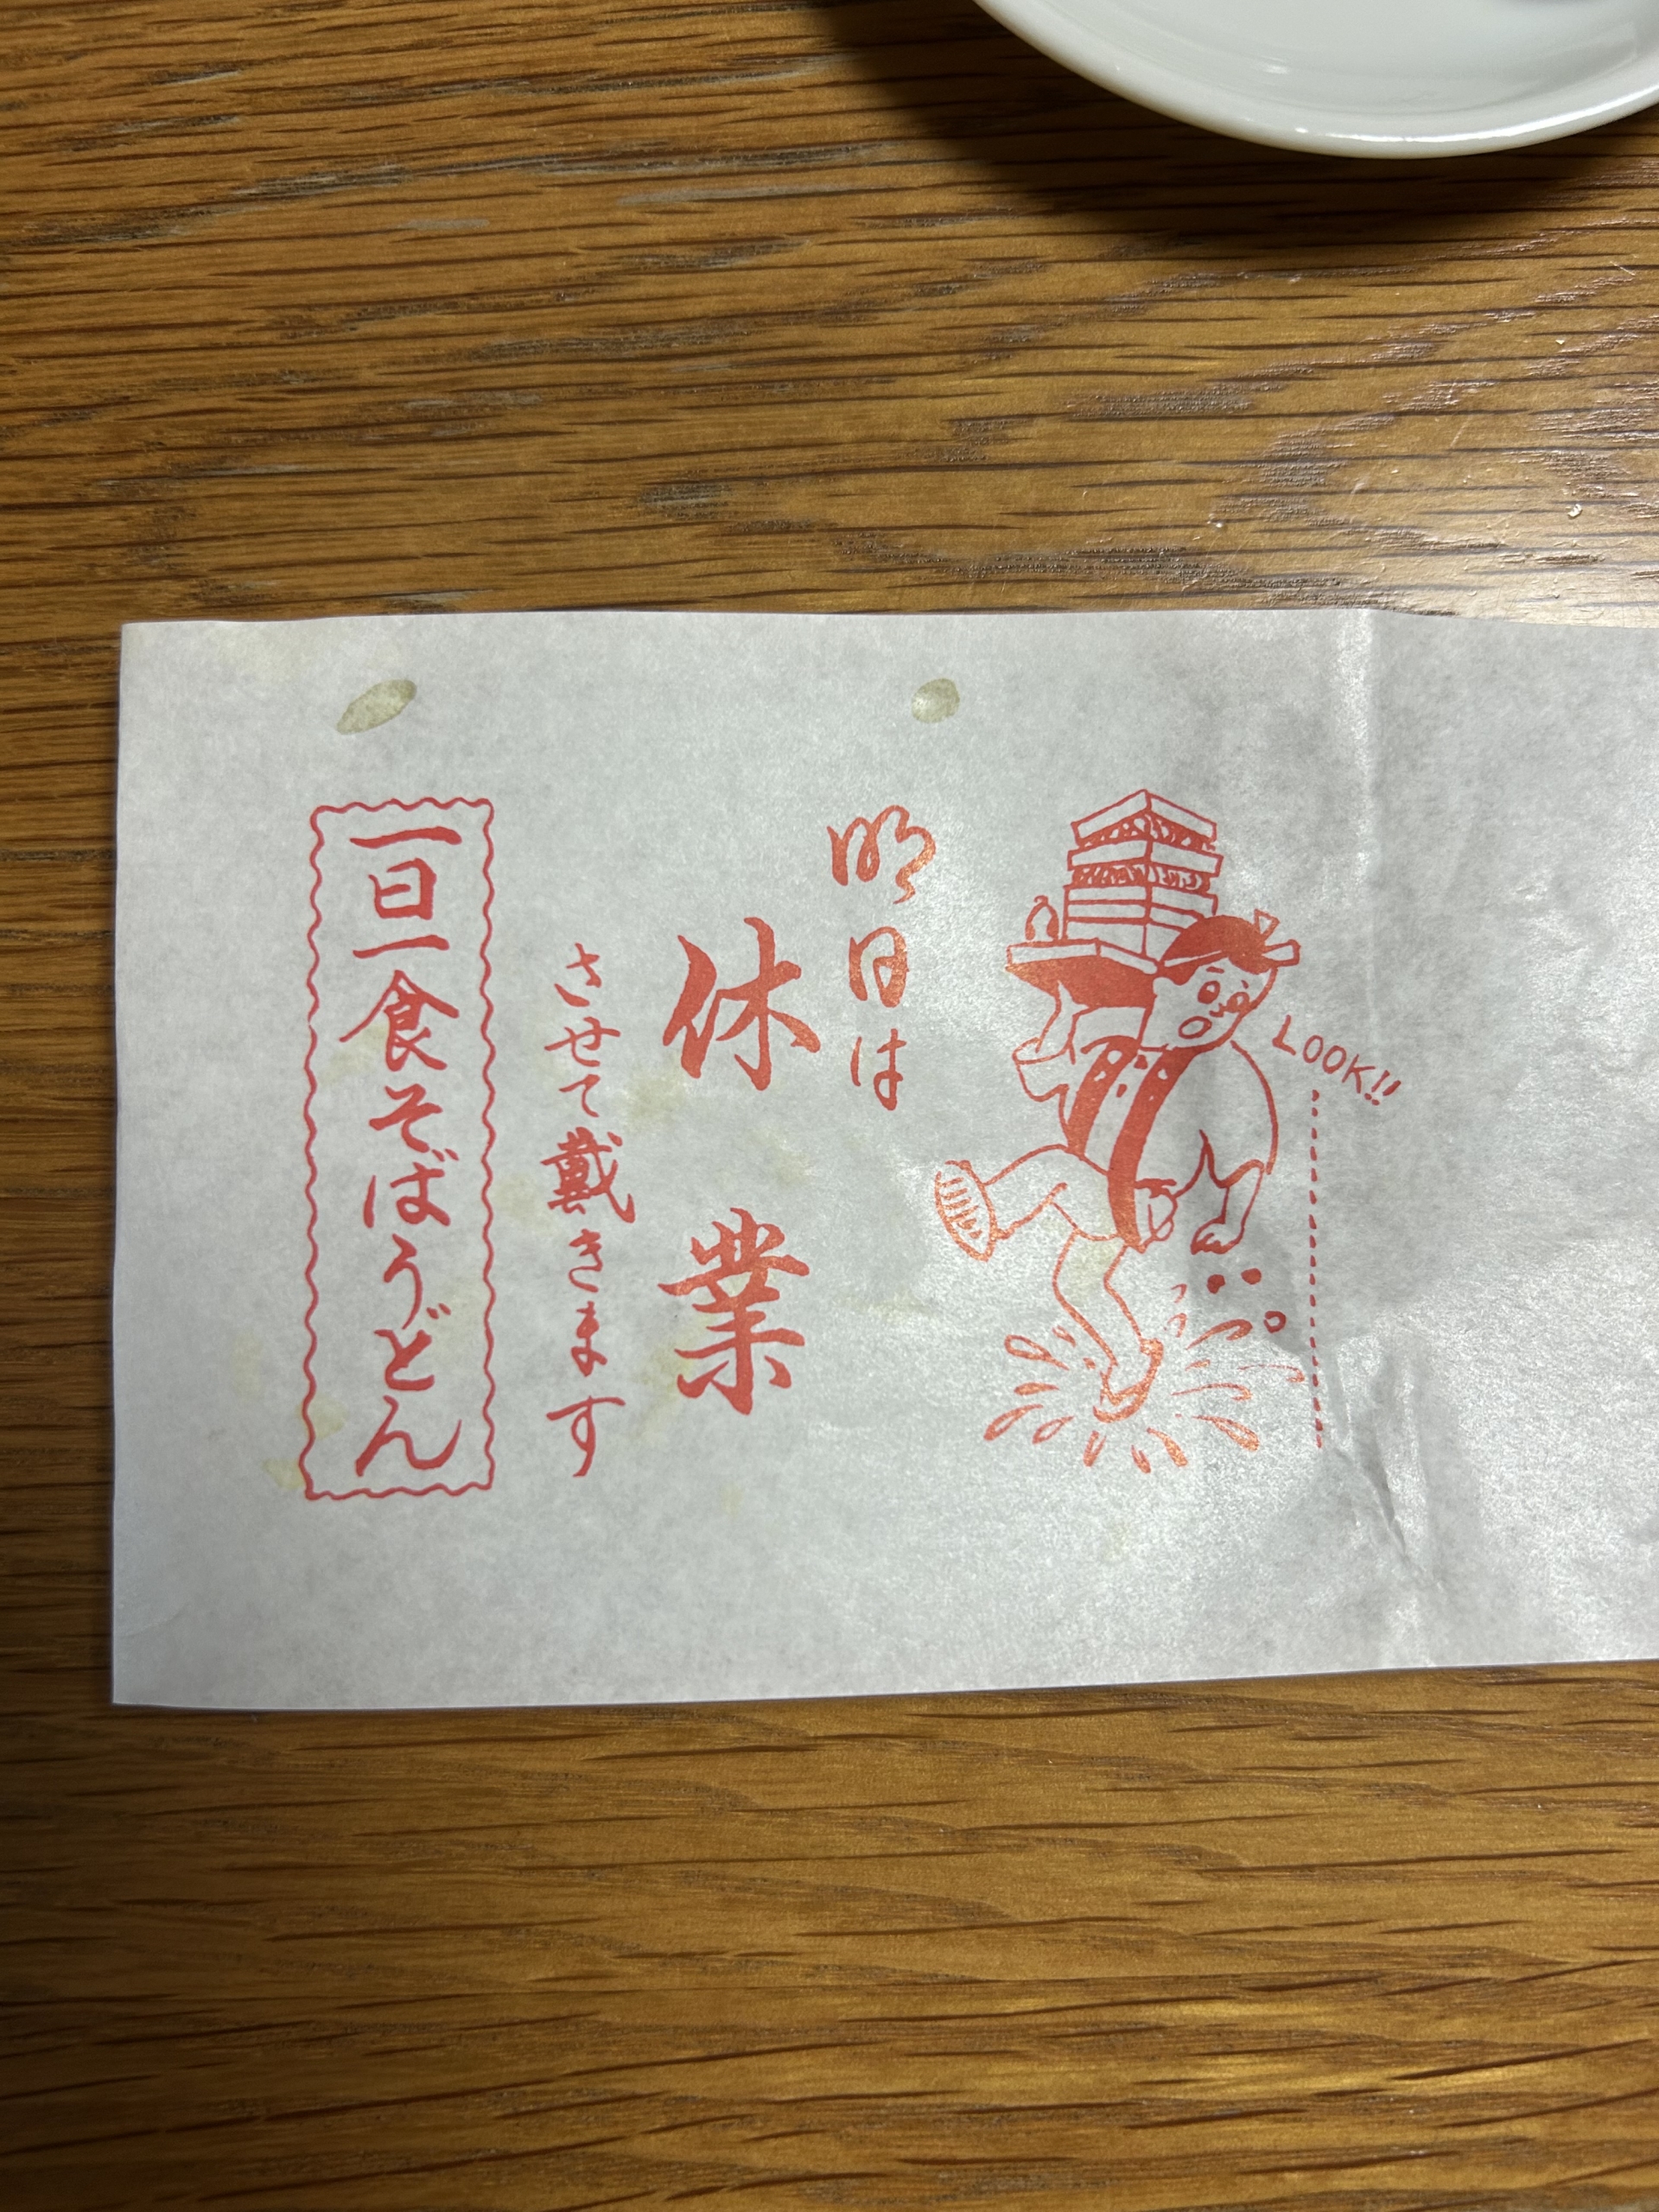 LOOK!!
明日は
休業
させて戴きます
一日一食そばうどん